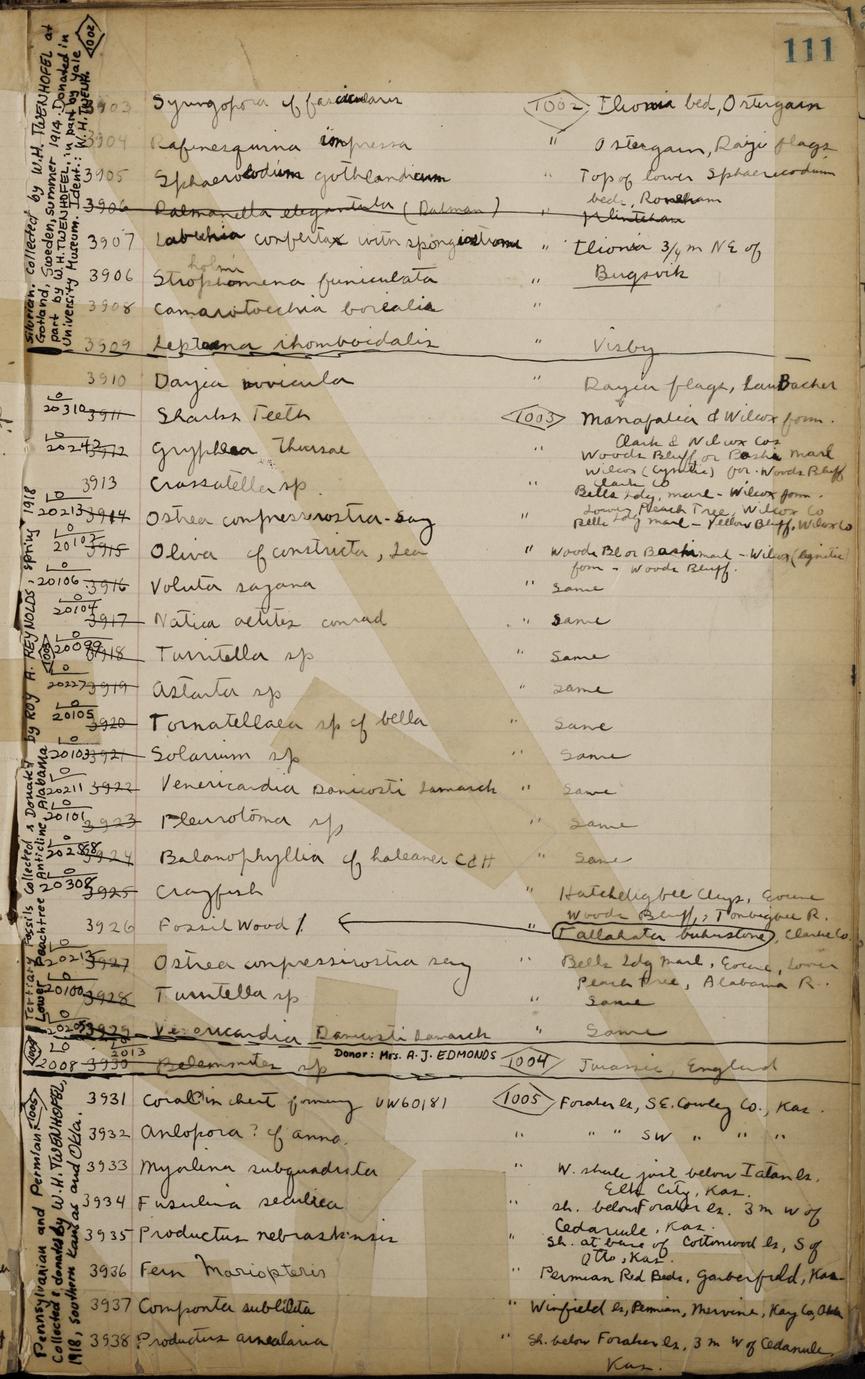 111
Silurian. Collected by W.H. TWENHOFEL at
Gotland, Sweden, summer 1914. Donated in
part by W.H. TWENHOFEL, in part by Yale
University Museum. Ident.: W.H. TWEN.
1002
3903 Syringopora cf fascicularis 1002 Ilionia bed, Ostergarn
3904 Rafinesquina impressa " Ostergarn, Rayi flags
3905 Sphaerocodium gothlandicum " Top of lower Sphaerocodium
bed,
3906 Dalmanella elegantula (Dalman) "
3907 Labechia confertax with spongiostroma " Ilionia 3/4 m NE of
holmi
3906 Strophomena funiculata " Bugsvik
3908 Camarotoechia borealis "
3909 Leptaena rhomboidalis " Visby
3910 Dayia navicula " Dayia flags,
Tertiary Fossils Collected & Donated by ROY A. REYNOLDS, spring 1918
Lower Peachtree Anticline, Alabama
1003
20310 3911 Sharks Teeth 1003 Manafalia & Wilcox form.
Clark & Wilcox Cos
20242 3912 Gryphea Thursae " Woods Bluff or Bashi Marl
Wilcox (Lignitic) for. Woods Bluff
Clark Co
3913 Crassatella sp " Bells Ldg, marl - Wilcox form.
Lower Peach Tree, Wilcox Co
20213 3914 Ostrea compressirostra - Say " Bells Ldg marl - Yellow Bluff, Wilcox Co
20107 3915 Oliva cf constricta, Lea " Woods Bl or Bashi marl - Wilcox (Lignitic)
form - Woods Bluff.
20106 3916 Voluta sayana " Same
20104 3917 Natica aetites conrad " Same
20099 3918 Turritella sp " Same
20227 3919 Astarta sp " Same
20105 3920 Tornatellaea sp cf bella " Same
20103 3921 Solarium sp " Same
20211 3922 Venericardia Danicosti Lamarck " Same
20101 3923 Pleurotoma sp " Same
3924 Balanophyllia cf haleaner C&H " Same
20308 3925 Crayfish " Hatchetigbee Clays, Eocene
Woods Bluff, Tombigbee R.
3926 Fossil Wood " Tallahata buhrstone, Clarke Co.
20215 3927 Ostrea compressirostra say " Bells Ldg Marl, Eocene, Lower
Peach Tree, Alabama R.
20100 3928 Turritella sp " Same
3929 Venericardia Danicosti Lamarck " Same
2013
2008 3930 Belemnites sp Donor: Mrs. A. J. EDMONDS 1004 Jurassic, England
Pennsylvanian and Permian. 1005
Collected & donated by W.H. TWENHOFEL,
1918, southern Kansas and Okla.
3931 Coral in chert forming UW60181 1005 Foraker ls, S.E. Cowley Co., Kas.
3932 Aulopora? cf anna. " " " SW " " "
3933 Myalina subquadrata " W. shale just below Iatan ls.
Elk City, Kas.
3934 Fusulina secalica " sh. below Foraker ls. 3 m W of
Cedarvale, Kas.
3935 Productus nebraskensis " Sh. at base of Cottonwood ls, S of
Otto, Kas.
3936 Fern Mariopteris " Permian Red Beds, Garberfield, Kas
3937 Composita subtilita " Winfield ls, Permian, Mervine, Kay Co, Okla
3938 Productus " Sh. below Foraker ls, 3 m W of Cedarvale,
Kas.